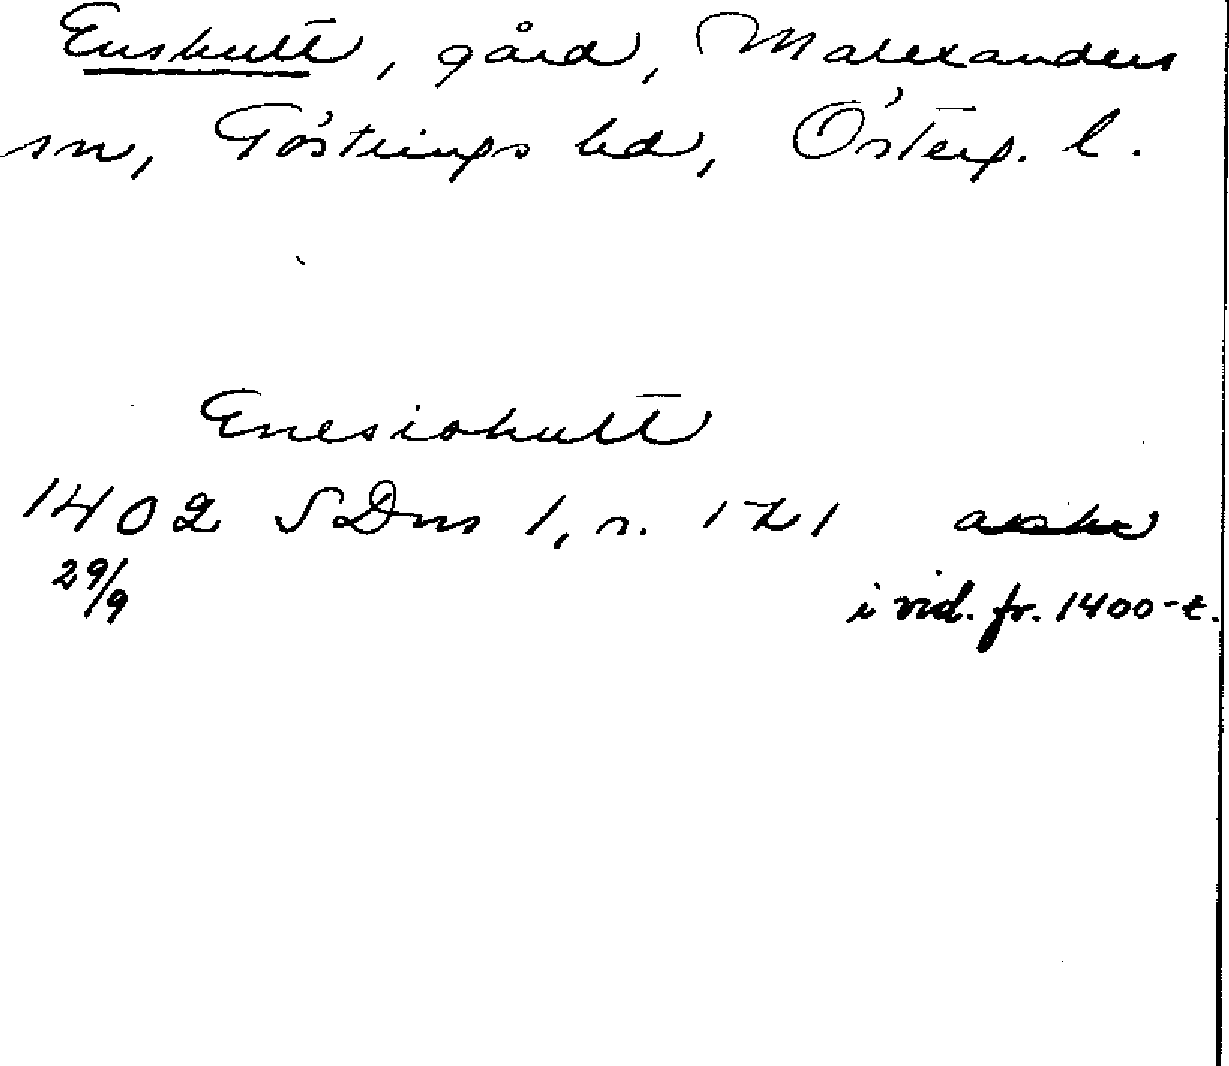 Enshult, gård, Malexanders
sn, Göstrings hd, Österg. l.
Enesiohult
1402 SDns 1, s. 121
29/9
i vid. fr. 1400-t.